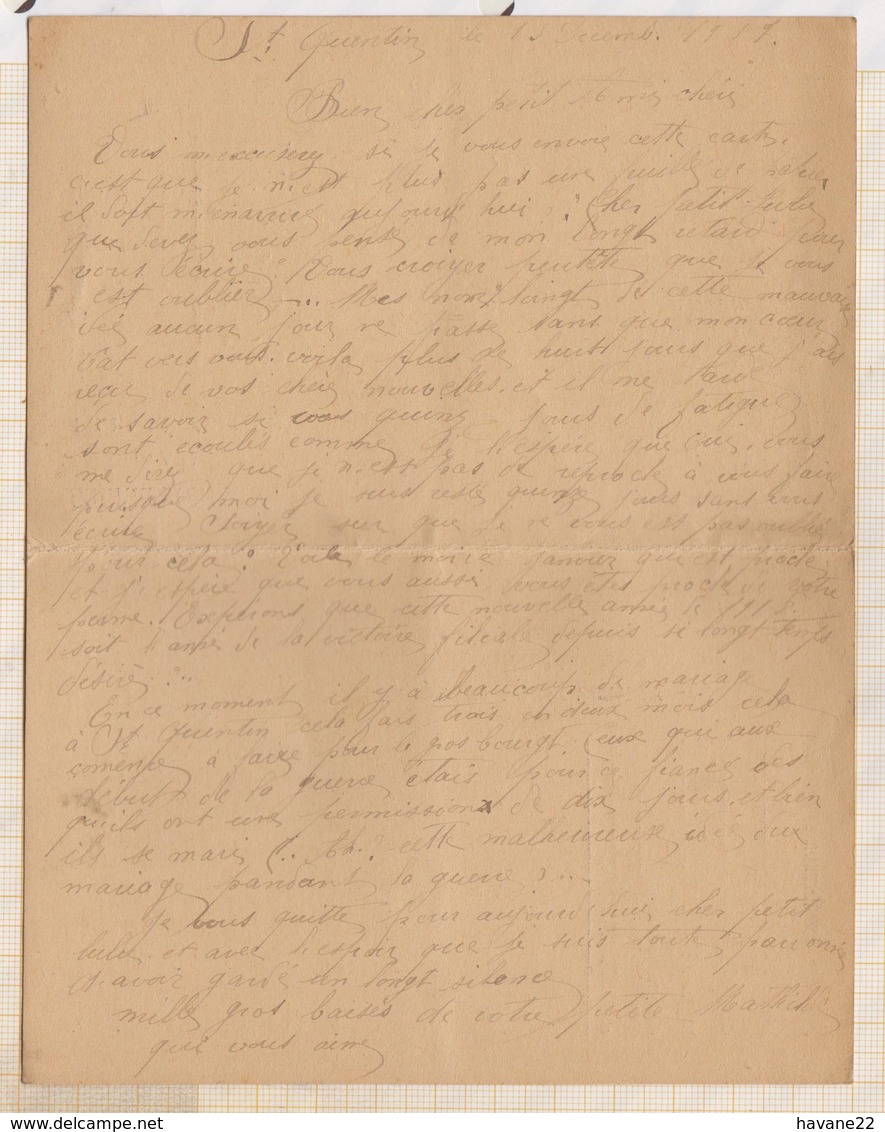 St Quentin le 13 Decemb. 1917.
Bien cher petit Ami chéri
Vous m'excuserez si je vous envoie cette carte.
c'est que je n'est plus pas une feuille de papier
il doit m'en arrivé aujourd'hui. Cher petit Lulu
que devez vous pensé de mon longt retard pour
vous écrire. Vous croyer peutête que je vous
est oublier ... Mes non, loingt de cette mauvaise
idé aucun jour ne passe sans que mon cœur
bat vers vous. voila plus de huit jours que j'ais
reçu de vos chère nouvelles. et il me tarde
de savoir si vos quinze jours de fatigue
sont écoulés comme je l'espère que oui. vous
me direz que je n'est pas de reproche à vous faire
puisque moi je suis resté quinze jours sans vous
écrire Soyer sur que je ne vous est pas oublié
pour cela. Voila le moi de janvier qui est proche
et j'espère que vous aussi vous êtes proche de votre
perme. Experons que cette nouvelle année le 1918.
soit l'anné de la victoire finale depuis si longt temps
désiré ...
En ce moment il y à beaucoup de mariage
à St Quentin cela fais trois en deux mois cela
comence à faire pour le gros bourgt. Ceux qui aux
début de la guerre étais pour ce fiancé dès
qu'ils ont une permission de dix jours. et bien
ils se mari (.. Ah.. cette malheureuse idé du
mariage pandant la guerre ...
Je vous quitte pour aujourd'hui cher petit
lulu et avec l'espoir que je suis toute pardonné
d'avoir gardé un longt silence
mille gros baisés de votre petite Mathilde
qui vous aime
havane22